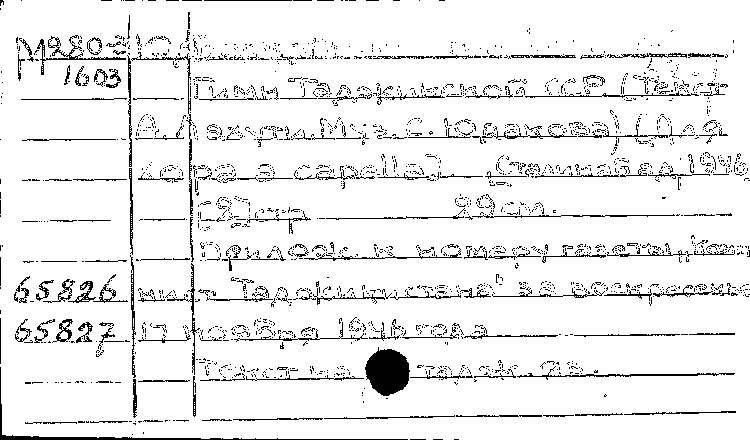 М280-3 Юдаков
1603 Гимн Таджикской ССР. (Текст
А. Лахути. Муз. С. Юдакова) [Для
хора a capella]. [Сталинабад, 1946
[2] стр 29 см.
Прилож. к номеру газеты „Комму
65826 нист Таджикистана" за воскресенье
65827 17 ноября 1946 года
Текст на тадж. яз.